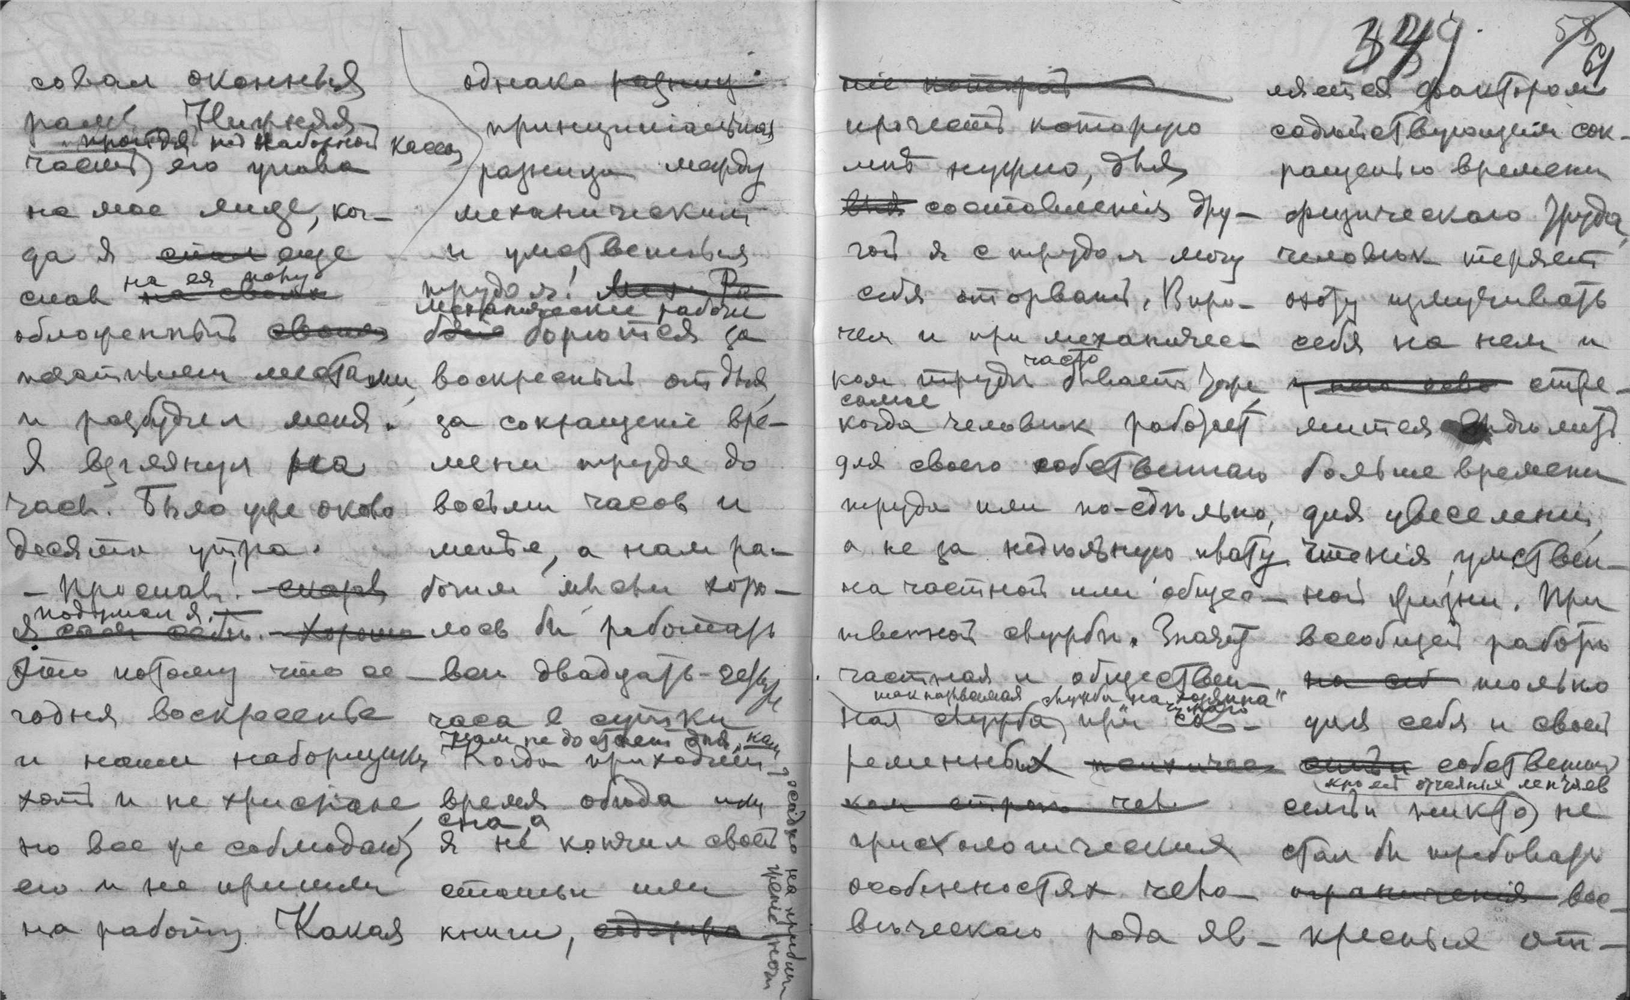 совал оконныя
рамы. Нижняя
(пройдя под наборной кассой
часть) его упала
на мое лице, ког-
да я спал еще
спав на ея полу
на своих
обложенный своим
платьем местами,
и разбудил меня.
Я взглянул на
часы. Было уже около
десяти утра.
- Проспав! - сказав
подумал я. -
я сам себе. - Хорошо
Это потому что се-
годня воскресенье
и наши наборщики
хоть и не христiане,
но все же соблюдают
его и не пришли
на работу. Какая
однако разниц
принципiальная
разница между
механическим
и умственным
трудом!
Механически рабочи
борются за
воскресный отдых,
за сокращенiе вре-
мени труда до
восьми часов и
менее, а нам ра-
ботая мысли хоте-
лось бы работать
все двадцать-четыре
часа в сутки
Нам не достает дня, нам
Когда приходит
время обеда или
сна, а
я не кончил своей
статьи или
книги,
досадно на
341
58
61
нie который
прочесть которую
мне нужно, для
составленiя дру-
гой я с трудом могу
себя оторвать. Впро-
чем и при механичес-
часто
ком труде бывает тоже
самое
когда человек работает
для своего собственного
труда или по-сдельно,
а не за недельную плату
на частной или общес-
твенной службе. Значит
частная и обществен-
так называемая служба на чужого "хозяина"
ная служба, при со-
временных психичес
ком строю чел
психологических
особенностях чело-
веческаго рода яв-
ляется фактором
содействующим сок-
ращенью времени
физическаго труда,
человек теряет
охоту измучивать
себя на нем и
у него стре-
мится удълить
больше времени
для увеселенiй,
чтенiя, умствен-
ной жизни. При
всеобщей работе
на себ только
для себя и своей
семьи собственной
(кроме отчаянья лентяев
семьи никто) не
стал бы требовать
ограниченiя вос-
кресныя от-